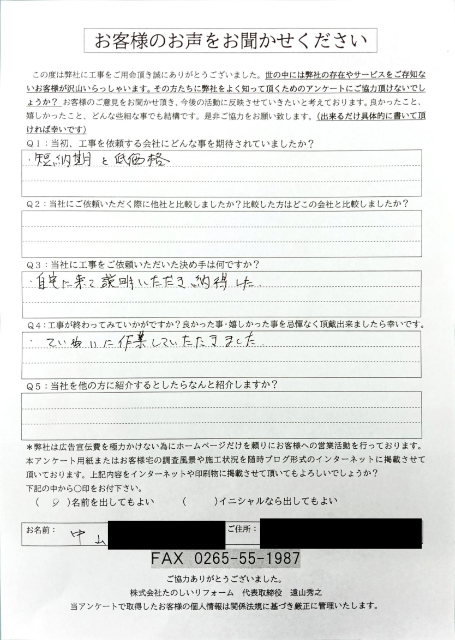 お客様のお声をお聞かせください
この度は弊社に工事をご用命頂き誠にありがとうございました。世の中には弊社の存在やサービスをご存知な
いお客様が沢山いらっしゃいます。その方たちに弊社をよく知って頂くためのアンケートにご協力頂けないでし
ょうか？ お客様のご意見をお聞かせ頂き、今後の活動に反映させていきたいと考えております。良かったこと、
嬉しかったこと、どんな些細な事でも結構です。是非ご協力をお願い致します。（出来るだけ具体的に書いて頂
ければ幸いです）
Q1：当初、工事を依頼する会社にどんな事を期待されていましたか？
・短納期と低価格
Q2：当社にご依頼いただく際に他社と比較しましたか？比較した方はどこの会社と比較しましたか？
Q3：当社に工事をご依頼いただいた決め手は何ですか？
・自宅に来て説明いただき納得した
Q4：工事が終わってみていかがですか？良かった事・嬉しかった事を忌憚なく頂戴出来ましたら幸いです。
・ていねいに作業していただきました
Q5：当社を他の方に紹介するとしたらなんと紹介しますか？
＊弊社は広告宣伝費を極力かけない為にホームページだけを頼りにお客様への営業活動を行っております。
本アンケート用紙またはお客様宅の調査風景や施工状況を随時ブログ形式のインターネットに掲載させて
頂いております。上記内容をインターネットや印刷物に掲載させて頂いてもよろしいでしょうか？
下記の中から〇印をお付け下さい。
（ ）名前を出してもよい （ ）イニシャルなら出してもよい
お名前： 中山 ご住所：
FAX 0265-55-1987
ご協力ありがとうございました。
株式会社たのしいリフォーム 代表取締役 遠山秀之
当アンケートで取得したお客様の個人情報は関係法規に基づき厳正に管理いたします。